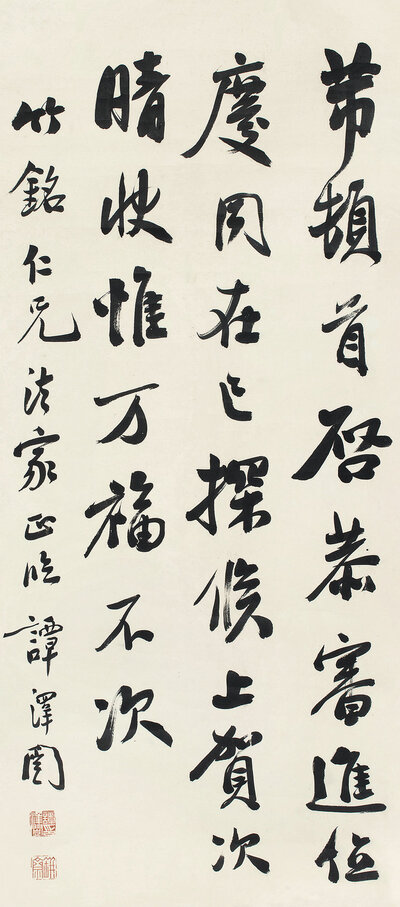 芾頓首启恭審進位
慶同在已探候上賀次
晴快惟万福不次
竹銘仁兄法家正临譚澤闓